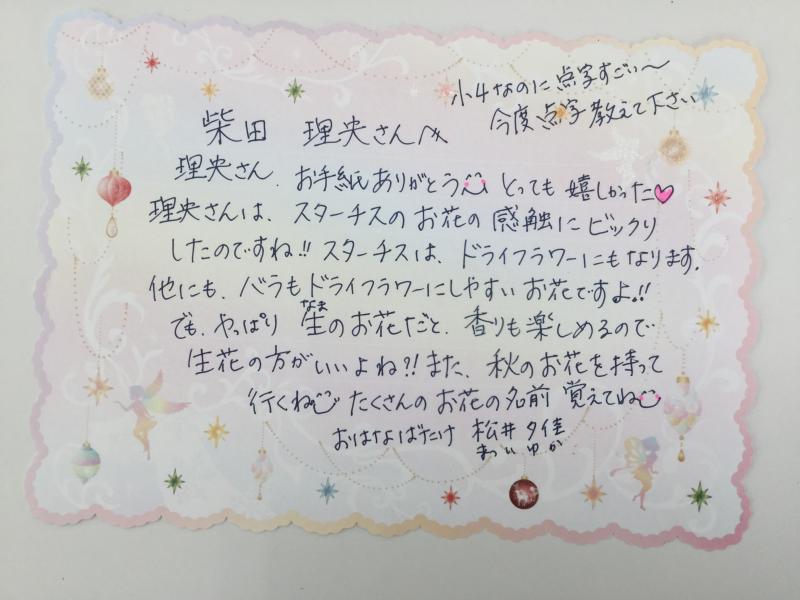 小4なのに点字すごい〜
今度点字教えて下さい
柴田 理央さんへ
理央さん、お手紙ありがとう とっても嬉しかった♡
理央さんは、スターチスのお花の感触にビックリ
したのですね!! スターチスは、ドライフラワーにもなります。
他にも、バラもドライフラワーにしやすいお花ですよ!!
でも、やっぱり生のお花だと、香りも楽しめるので
なま
生花の方がいいよね?! また、秋のお花を持って
行くね たくさんのお花の名前覚えてね
おはなばたけ 松井 夕佳
まつい ゆか